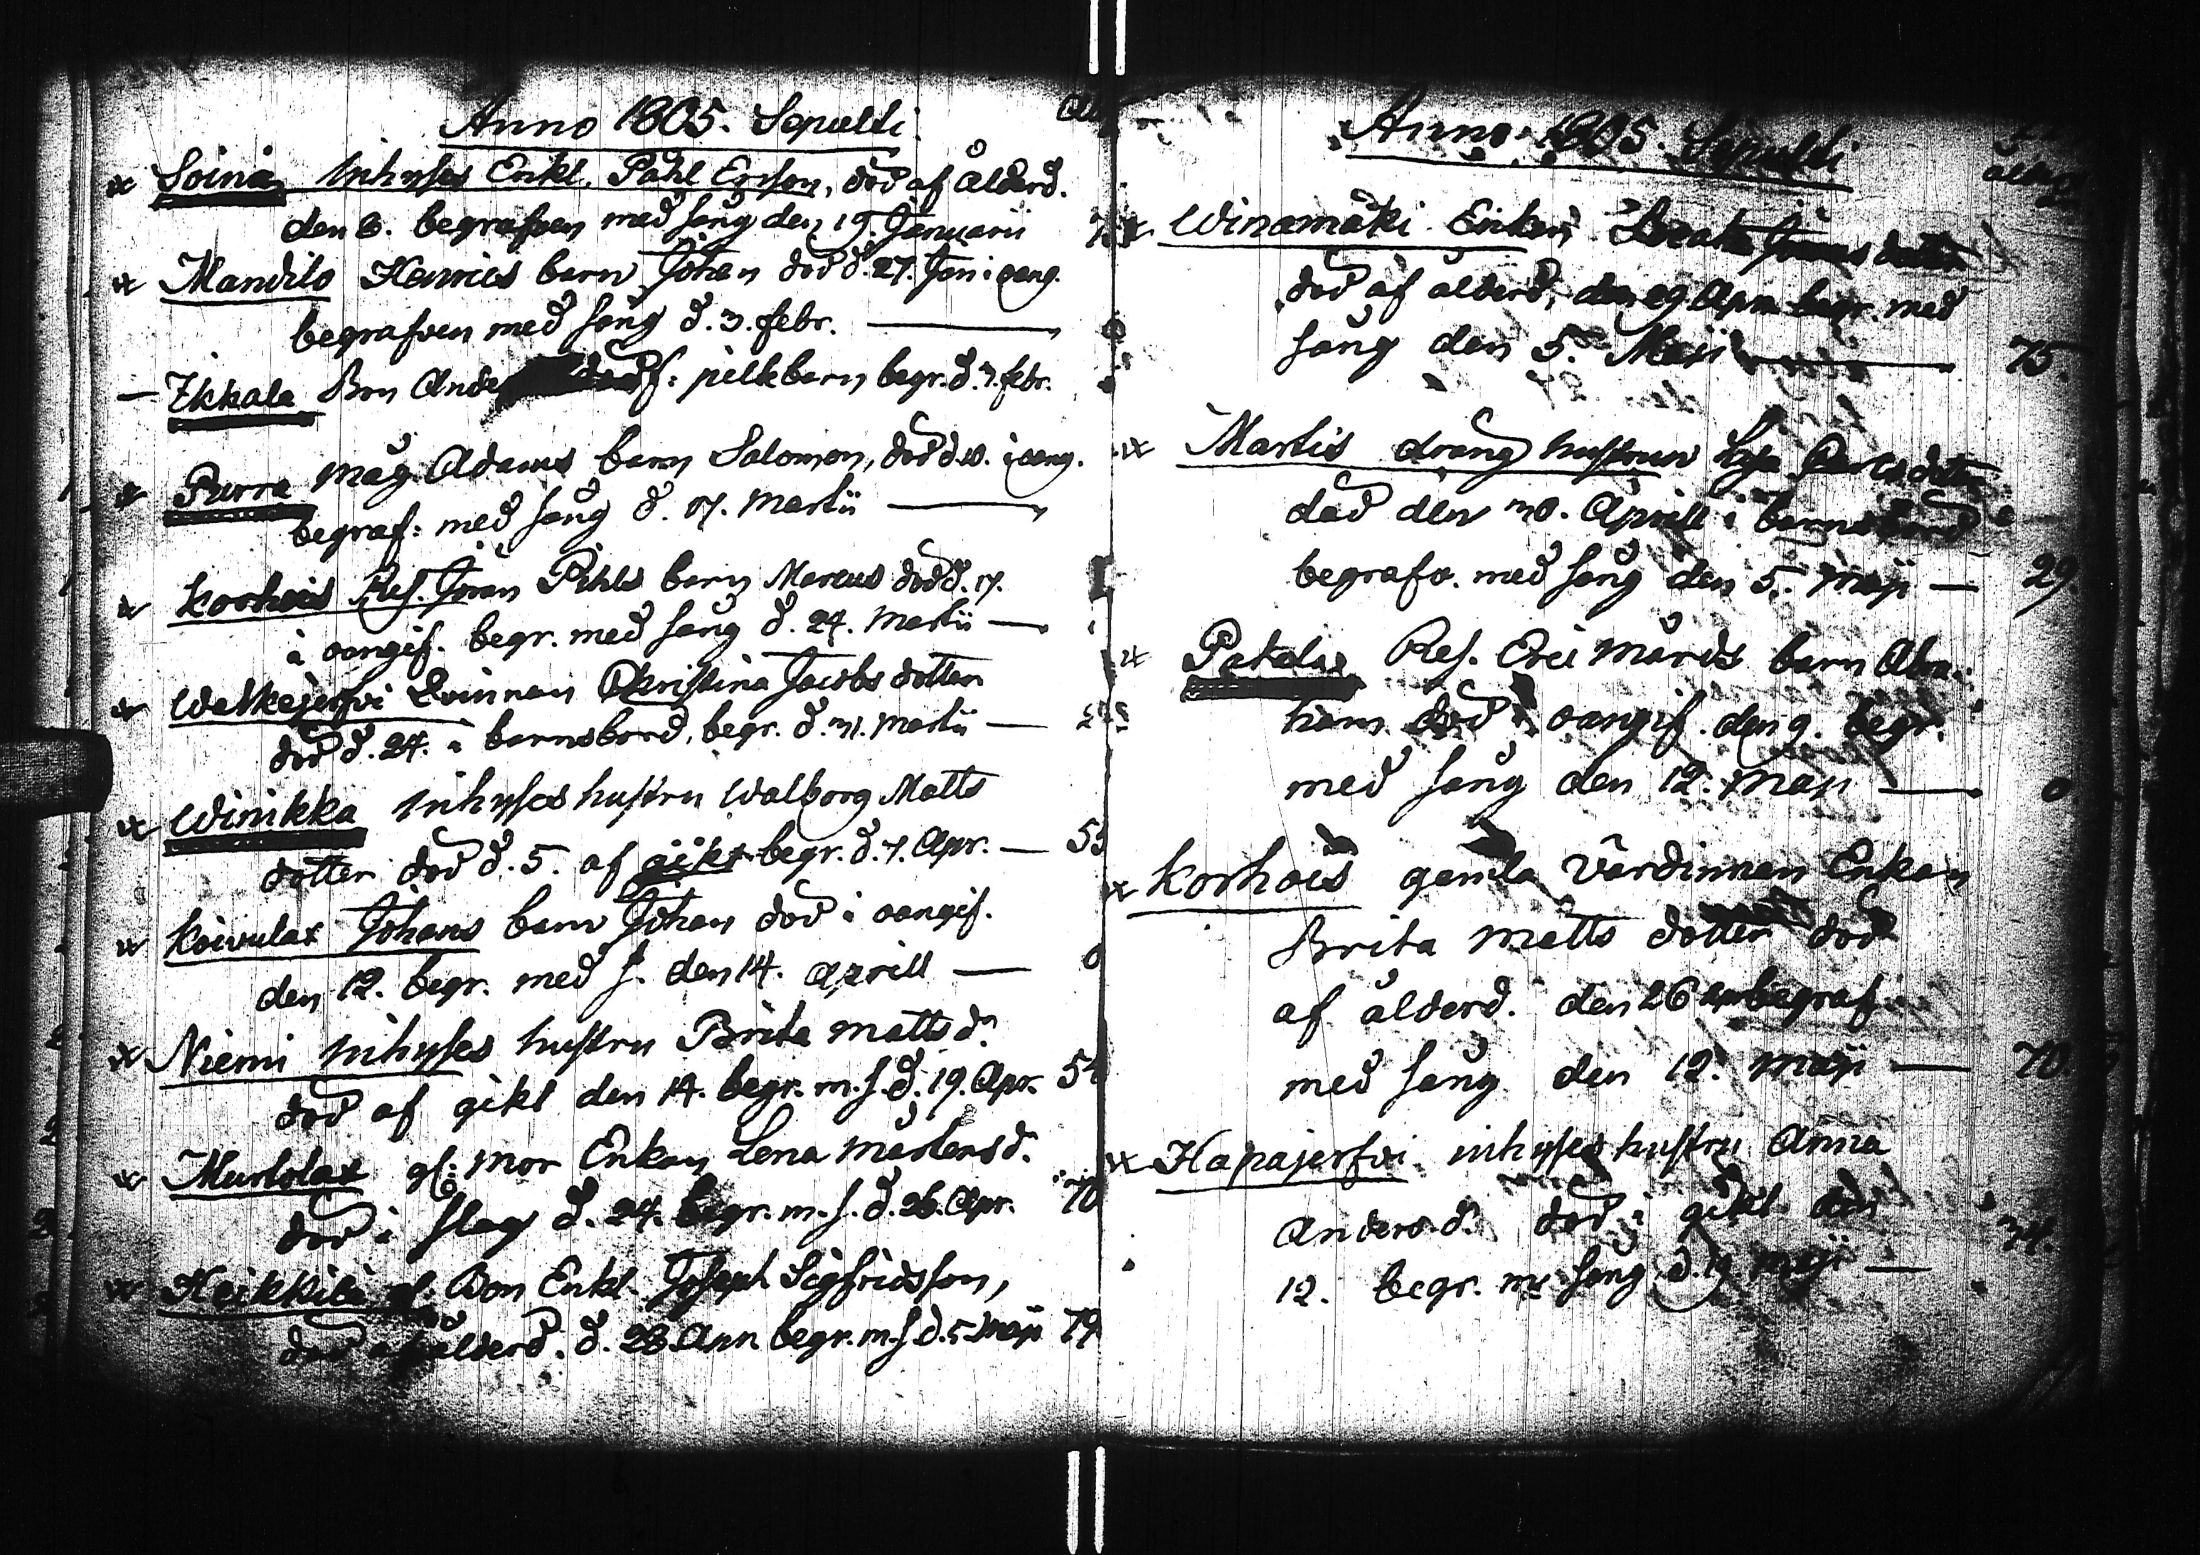 Anno 1805. Sepulti
Soinis Inhyses Enkl. Påhl Ersson, död af Ålderd.
den 6. begrafven med sång den 19. Januarii
Mandilo Henrics barn Johan död d. 27. Jan i oang.
begrafven med sång d. 3. febr. —
Ikkala Bon Ande pilkbarn begr. d. 3. febr.
Purra måg Adams barn Salomon, död d. 10. i oang.
begraf: med sång d. 17. Martii —
Korhois Ref. Jöran Pihls barn Marcus död d. 17.
i oangif. begr. med sång d. 24. Martii —
Walkejerfvi Qvinnan Christina Jacobs dotter
död d. 24. i barnsbörd, begr. d. 31. Martii —
Winikka Inhyses hustru Walborg Matts
dotter död d. 5. af gikt begr. d. 7. Apr. — 53
Koivulax Johans barn Johan död i oangif.
den 12. begr. med s. den 14. Aprill — 0
Niemi Inhyses hustru Brita Matts d:r
död af gikt den 14. begr. m. s. d. 19. Apr. 54
Murtolax gl: Mor Enkan Lena Mårtens d.
död i slag d. 24. begr. m. s. d. 26. Apr. 70
Heikkilä gl. Bon Enkl. Joseph Sigfridsson,
död af ålderd. d. 28. Apr. begr. m. s. d. 5. Maji 79
Anno 1805. Sepulti
Winamäki Enkan dotter
död af ålderd. den 29 Apr. begr. med
sång den 5. Maji — 75.
Martis dräng hustrun dotter
död den 30. Aprill i barnsbörd
begrafv. med sång den 5. Maji — 29.
Pakalas Ref. Eric Mårds barn Abra-
ham död i oangif. den 9. begr.
med sång den 12. Maji — 0.
Korhois gamla Värdinnan Enkan
Brita Matts dotter död
af ålderd. den 26 apr begraf
med sång den 12. Maji — 70.
Hapajerfvi inhyses hustru Anna
Anders d:r död i gikt den
12. begr. m. sång d. 19 Maji — 34.